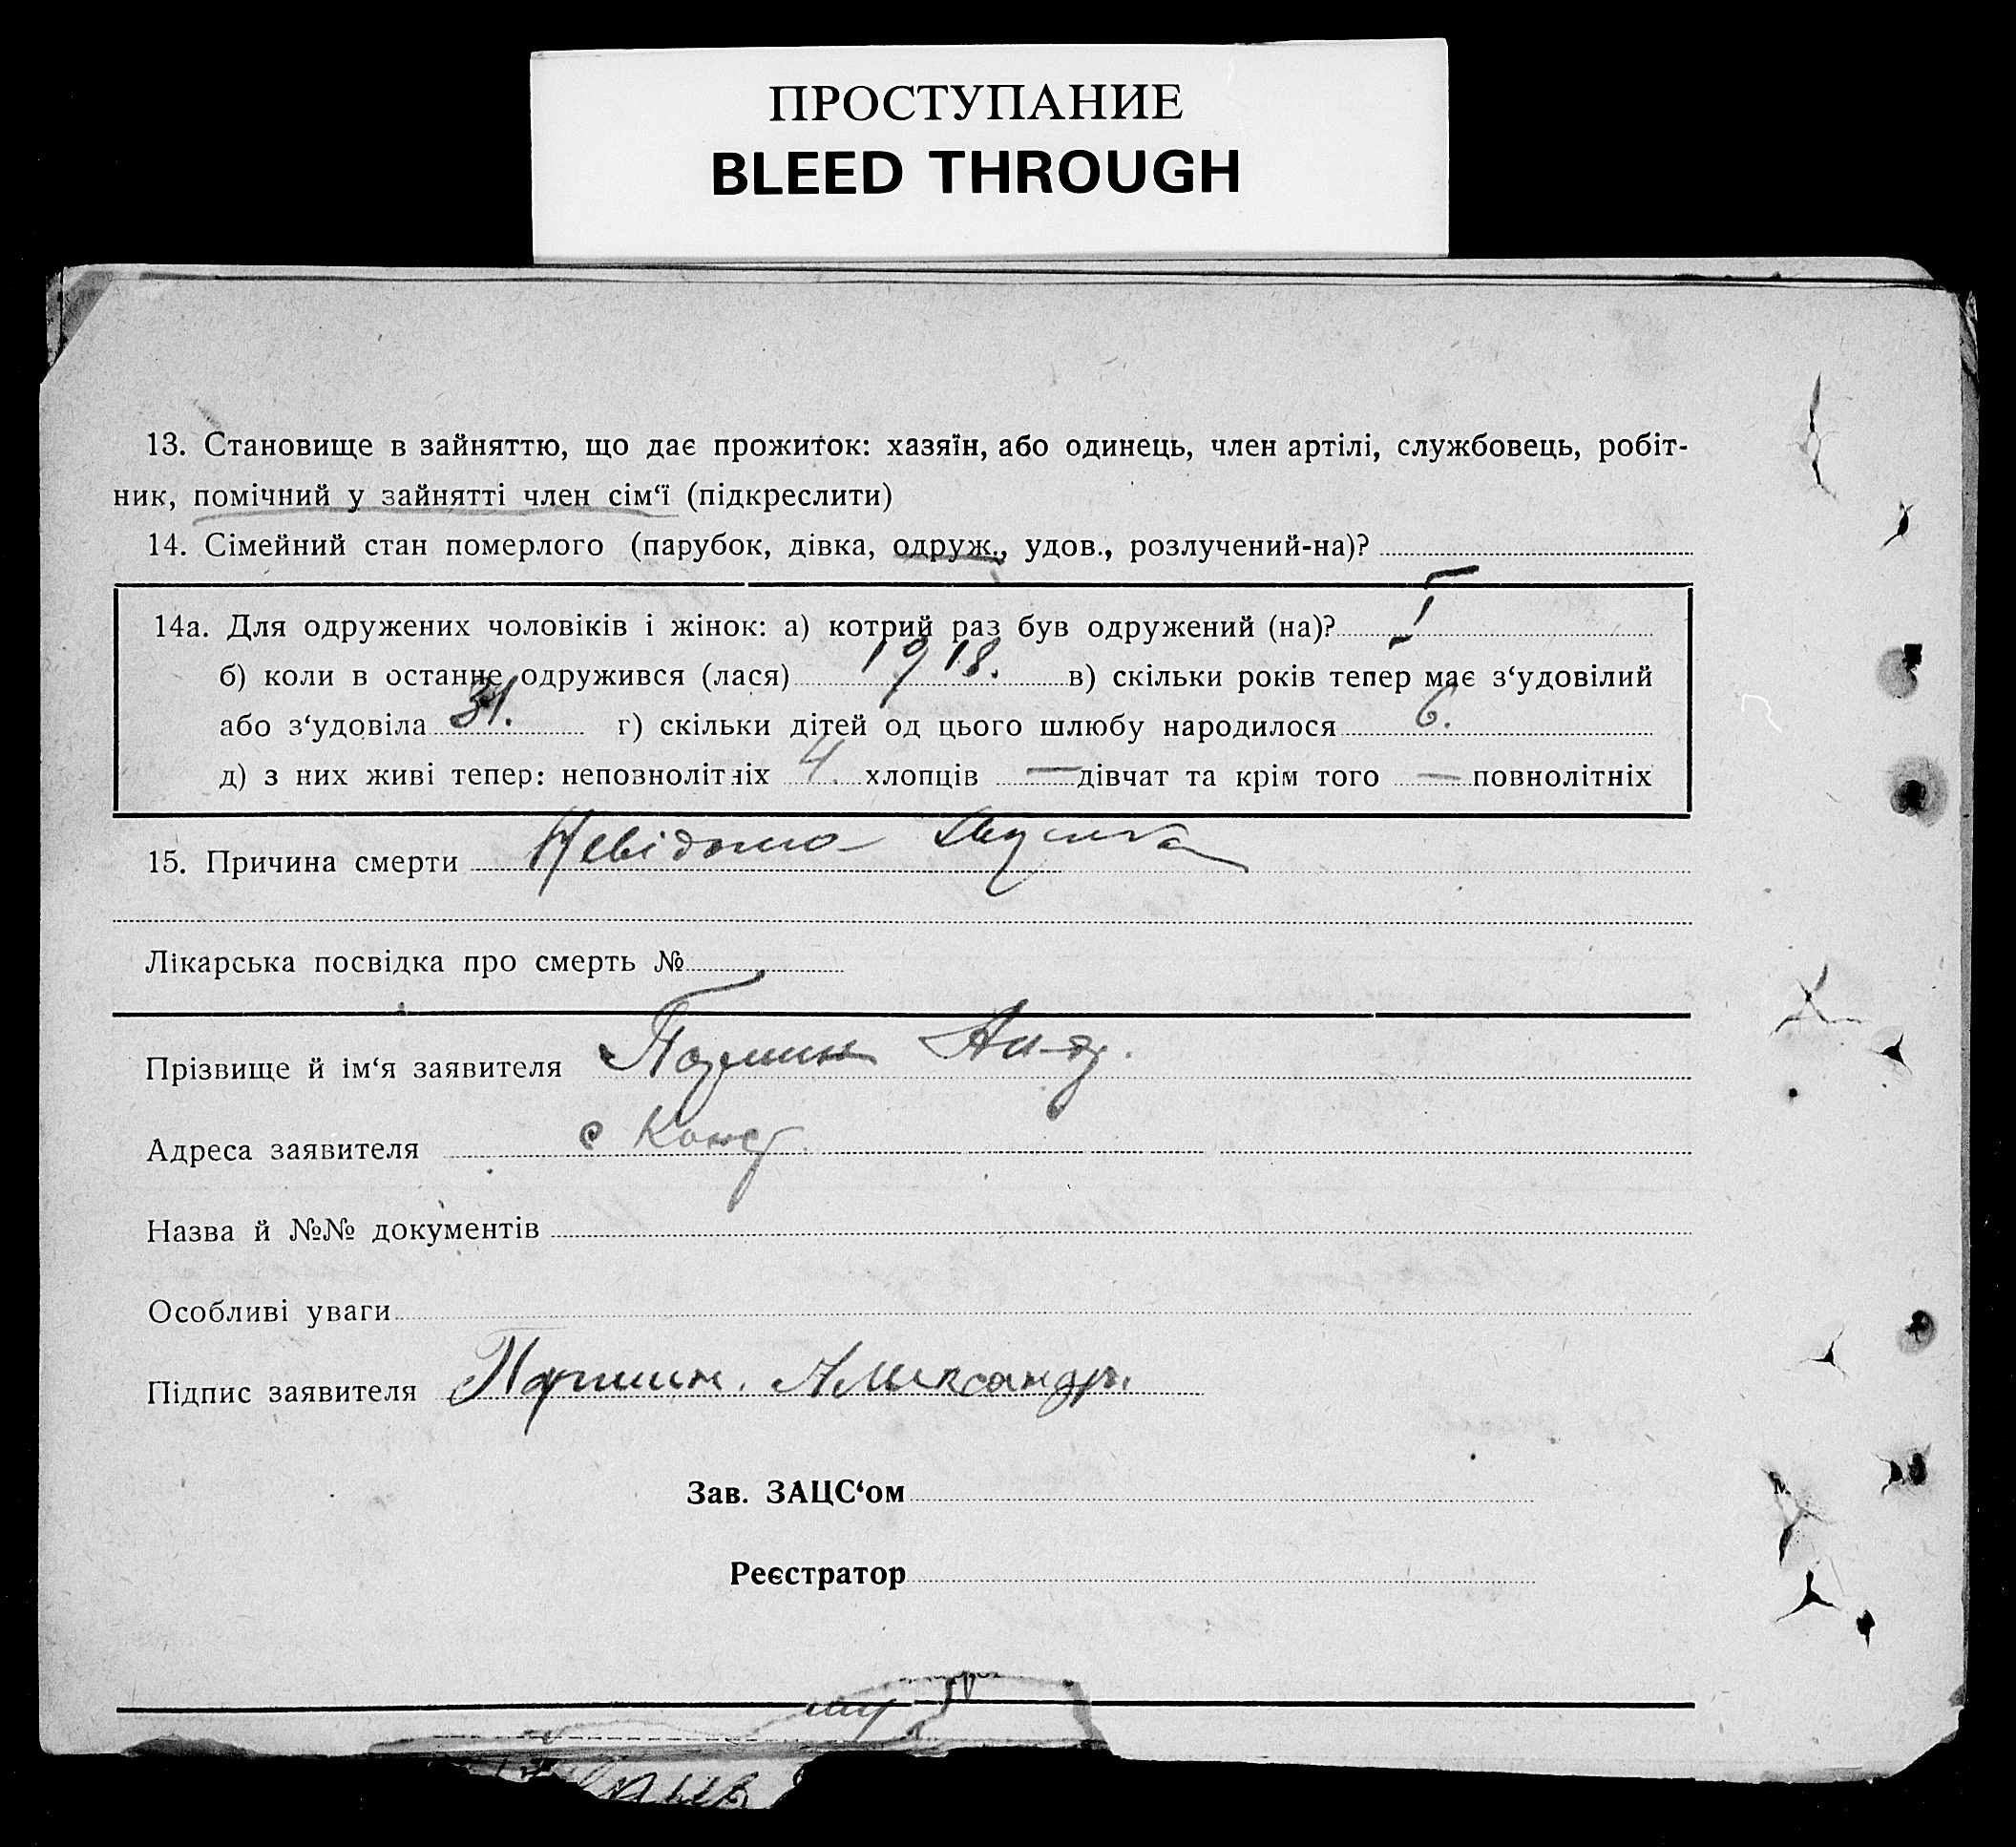 ПРОСТУПАНИЕ
BLEED THROUGH
13. Становище в зайняттю, що дає прожиток: хазяїн, або одинець, член артілі, службовець, робіт-
ник, помічний у зайнятті член сім‘ї (підкреслити)
14. Сімейний стан померлого (парубок, дівка, одруж., удов., розлучений-на)?
14а. Для одружених чоловіків і жінок: а) котрий раз був одружений (на)? I
б) коли в останне одружився (лася) 1918. в) скільки років тепер має з‘удовілий
або з‘удовіла 31. г) скільки дітей од цього шлюбу народилося 6.
д) з них живі тепер: неповнолітніх 4 хлопців — дівчат та крім того — повнолітніх
15. Причина смерти Невідомо
Лікарська посвідка про смерть №
Прізвище й ім‘я заявителя
Адреса заявителя с Конст
Назва й №№ документів
Особливі уваги
Підпис заявителя Паршин. Александр.
Зав. ЗАЦС‘ом
Реєстратор